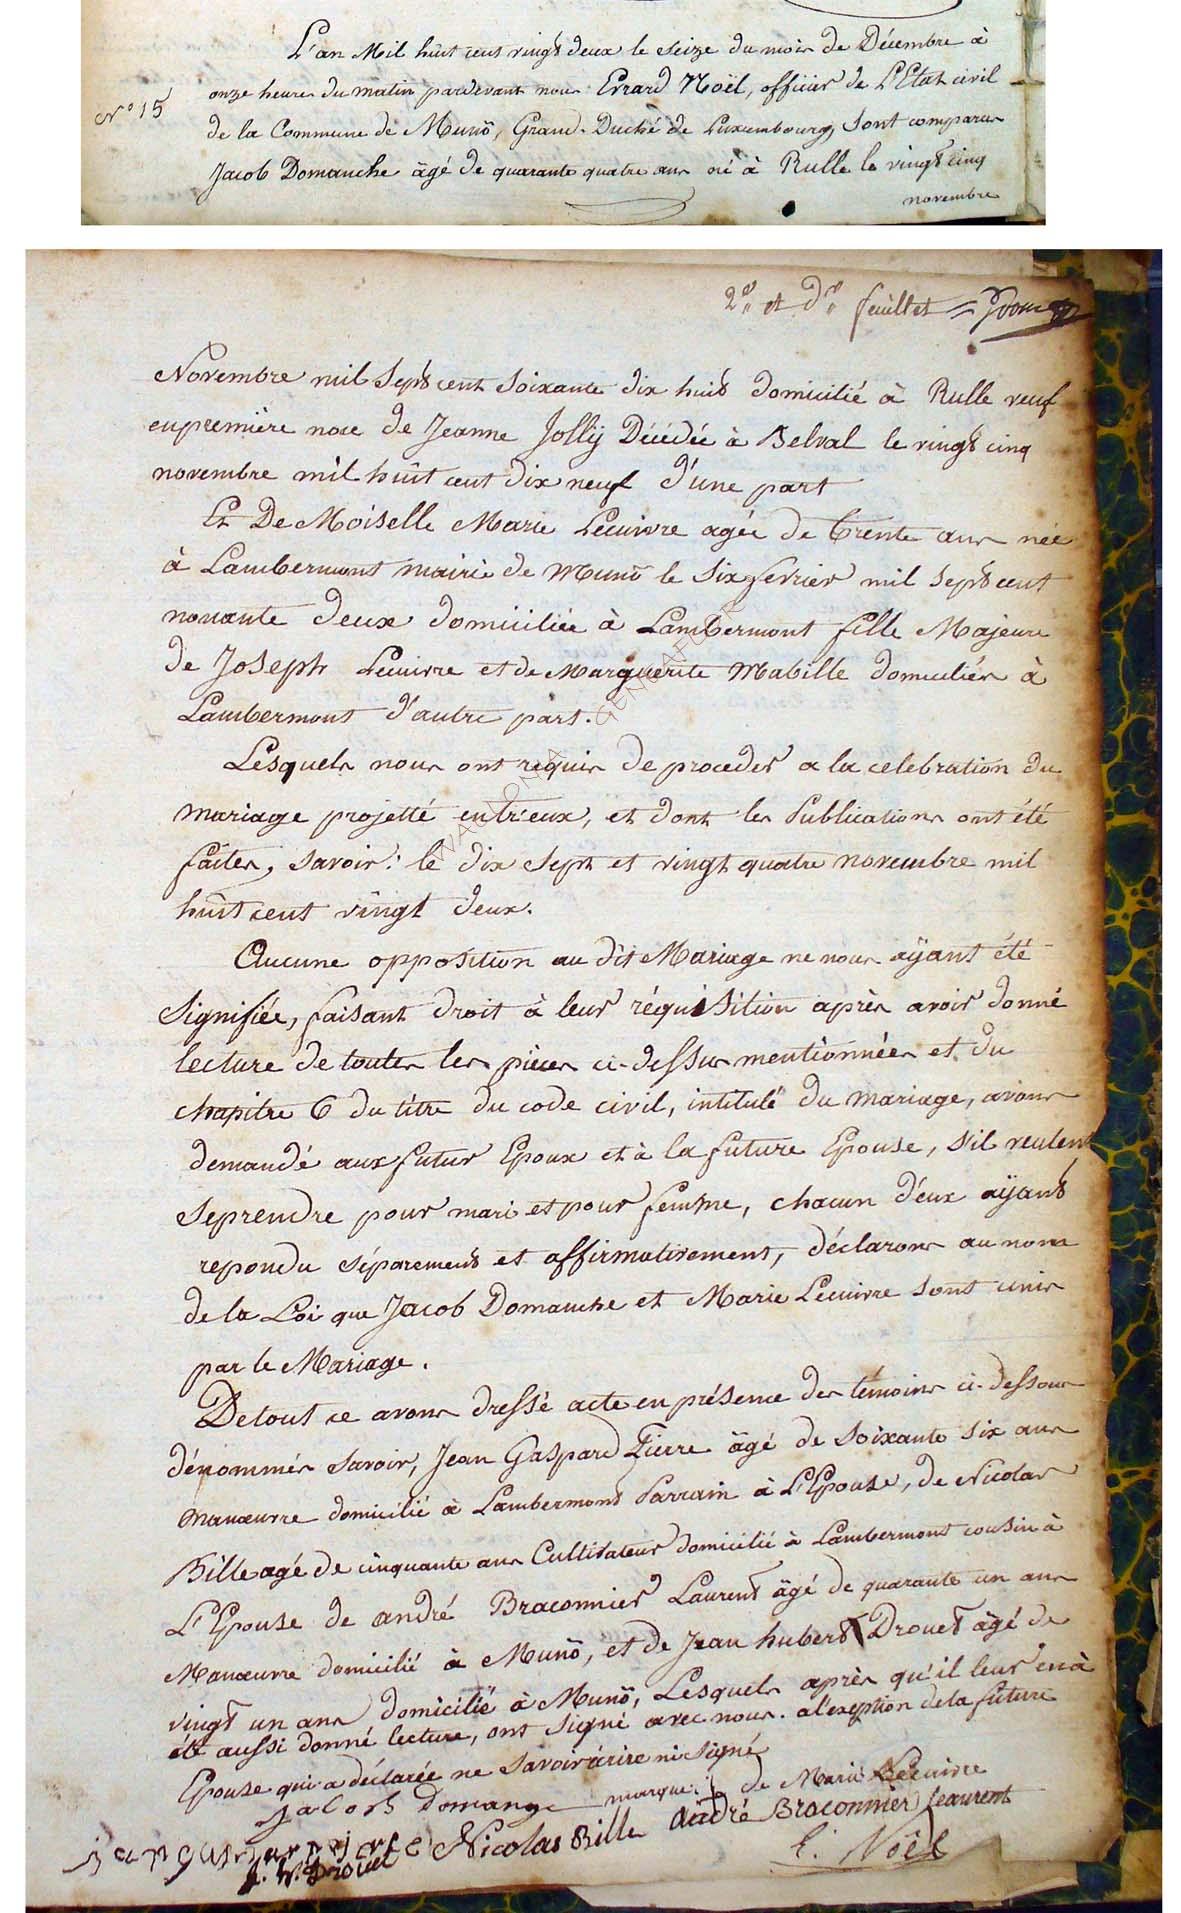 L'an Mil huit cent vingt deux le seize du mois de Décembre à
N° 15
onze heures du matin pardevant nous Errard Noël, officier de L'Etat civil
de la Commune de Munô, Grand-Duché de Luxembourg, sont comparus
Jacob Domanche âgé de quarante quatre ans né à Rulle le vingt cinq
novembre
2e et dr feuillet
Novembre mil sept cent soixante dix huit domicilié à Rulle veuf
en première noce de Jeanne Jollÿ Décédée à Belval le vingt cinq
novembre mil huit cent dix neuf d'une part
Et DeMoiselle Marie Lecuivre agée de trente ans née
à Lambermont mairie de Munô le six fevrier mil sept cent
nonante deux domiciliée à Lambermont fille Majeure
de Joseph Lecuivre et de Marguerite Mabille domiciliés à
Lambermont d'autre part.
Lesquels nous ont requis de proceder a la celebration du
mariage projetté entr'eux, et dont les Publications ont été
faites, savoir: le dix sept et vingt quatre novembre mil
huit cent vingt deux.
Aucune opposition au dit Mariage ne nous aÿant été
signifiée, faisant droit à leur réquisition après avoir donné
lecture de toutes les pièces ci-dessus mentionnées et du
chapitre 6 du titre du code civil, intitulé du mariage, avons
demandé aux futur Epoux et à la future Epouse, s'il veulent
se prendre pour mari et pour femme, chacun d'eux aÿant
repondu séparement et affirmativement, déclarons au nom
de la Loi que Jacob Domanche et Marie Lecuivre sont unis
par le Mariage.
De tout ce avons dressé acte en présence des témoins ci-dessous
dénommés savoir, Jean Gaspard Pierre âgé de soixante six ans
manœuvre domicilié à Lambermont Parrain à L'Epouse, de Nicolas
Bille agé de cinquante ans Cultivateur domicilié à Lambermont cousin à
L'Epouse de andré Braconnier Laurent âgé de quarante un ans
Manœuvre domicilié à Munô, et de Jean hubert Drouet âgé de
vingt un ans domicilié à Munô, Lesquels après qu'il leur en à
été aussi donné lecture, ont signé avec nous. a l'exeption de la future
Epouse qui a déclarée ne savoir écrire ni signé
jacob domange marque + de Marie Lecuivre
Nicolas Bille André Braconnier Leaurent
J. h. Drouet E. Noël
WALLONIA GENEAFOR